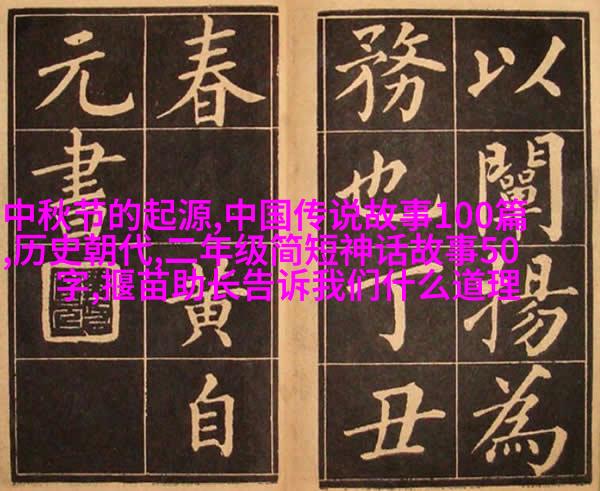 以闡揚為
務也丁丑
春黃自
元書
中秋节的起源,中国传说故事100篇
,历史朝代,二年级简短神话故事50
字,揠苗助长告诉我们什么道理